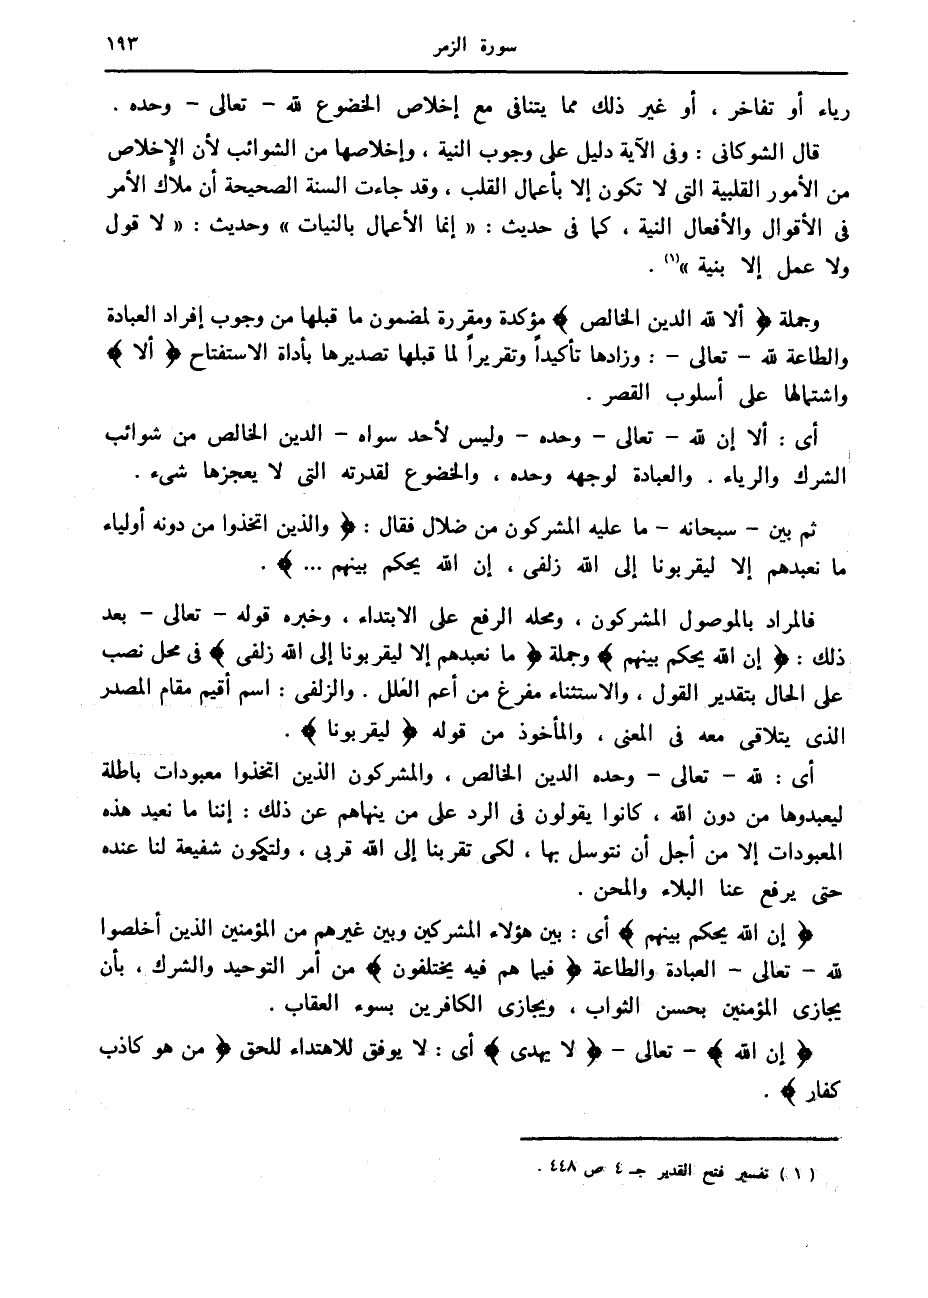 سورة الزمر ١٩٣
رياء أو تفاخر ، أو غير ذلك مما يتنافى مع إخلاص الخضوع لله – تعالى – وحده .
قال الشوكانى : وفى الآية دليل على وجوب النية ، وإخلاصها من الشوائب لأن الإخلاص
من الأمور القلبية التى لا تكون إلا بأعمال القلب ، وقد جاءت السنة الصحيحة أن ملاك الأمر
فى الأقوال والأفعال النية ، كما فى حديث : « إنما الأعمال بالنيات » وحديث : « لا قول
ولا عمل إلا بنية »(١) .
وجملة ﴿ ألا لله الدين الخالص ﴾ مؤكدة ومقررة لمضمون ما قبلها من وجوب إفراد العبادة
والطاعة لله – تعالى – : وزادها تأكيداً وتقريراً لما قبلها تصديرها بأداة الاستفتاح ﴿ ألا ﴾
واشتمالها على أسلوب القصر .
أى : ألا إن لله – تعالى – وحده – وليس لأحد سواه – الدين الخالص من شوائب
الشرك والرياء . والعبادة لوجهه وحده ، والخضوع لقدرته التى لا يعجزها شىء .
ثم بين – سبحانه – ما عليه المشركون من ضلال فقال : ﴿ والذين اتخذوا من دونه أولياء
ما نعبدهم إلا ليقربونا إلى الله زلفى ، إن الله يحكم بينهم ... ﴾ .
فالمراد بالموصول المشركون ، ومحله الرفع على الابتداء ، وخبره قوله – تعالى – بعد
ذلك : ﴿ إن الله يحكم بينهم ﴾ وجملة ﴿ ما نعبدهم إلا ليقربونا إلى الله زلفى ﴾ فى محل نصب
على الحال بتقدير القول ، والاستثناء مفرغ من أعم العلل . والزلفى : اسم أقيم مقام المصدر
الذى يتلاقى معه فى المعنى ، والمأخوذ من قوله ﴿ ليقربونا ﴾ .
أى : لله – تعالى – وحده الدين الخالص ، والمشركون الذين اتخذوا معبودات باطلة
ليعبدوها من دون الله ، كانوا يقولون فى الرد على من ينهاهم عن ذلك : إننا ما نعبد هذه
المعبودات إلا من أجل أن نتوسل بها ، لكى تقربنا إلى الله قربى ، ولتكون شفيعة لنا عنده
حتى يرفع عنا البلاء والمحن .
﴿ إن الله يحكم بينهم ﴾ أى : بين هؤلاء المشركين وبين غيرهم من المؤمنين الذين أخلصوا
لله – تعالى – العبادة والطاعة ﴿ فيما هم فيه يختلفون ﴾ من أمر التوحيد والشرك ، بأن
يجازى المؤمنين بحسن الثواب ، ويجازى الكافرين بسوء العقاب .
﴿ إن الله ﴾ – تعالى – ﴿ لا يهدى ﴾ أى : لا يوفق للاهتداء للحق ﴿ من هو كاذب
كفار ﴾ .
( ١ ) تفسير فتح القدير جـ ٤ ص ٤٤٨ .